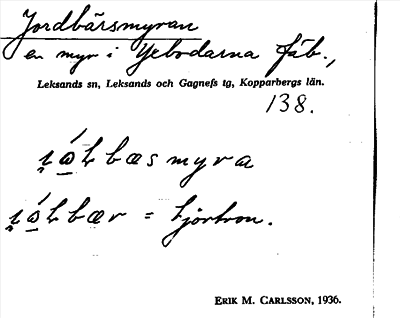 Jordbärsmyran
en myr i Yebodarna fäb.,
Leksands sn, Leksands och Gagnefs tg, Kopparbergs län.
138.
hjortron.
ERIK M. CARLSSON, 1936.